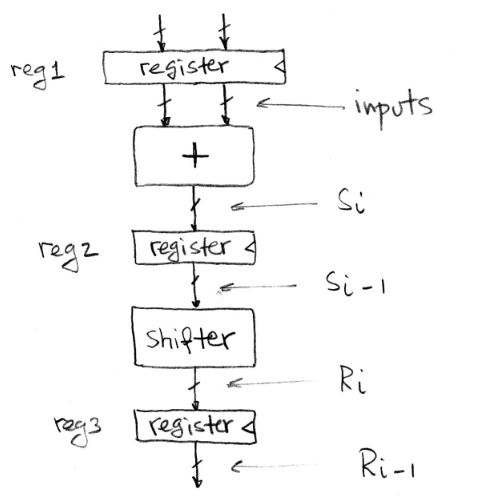 reg1 register
inputs
+
Si
reg2 register
Si-1
Shifter
Ri
reg3 register
Ri-1